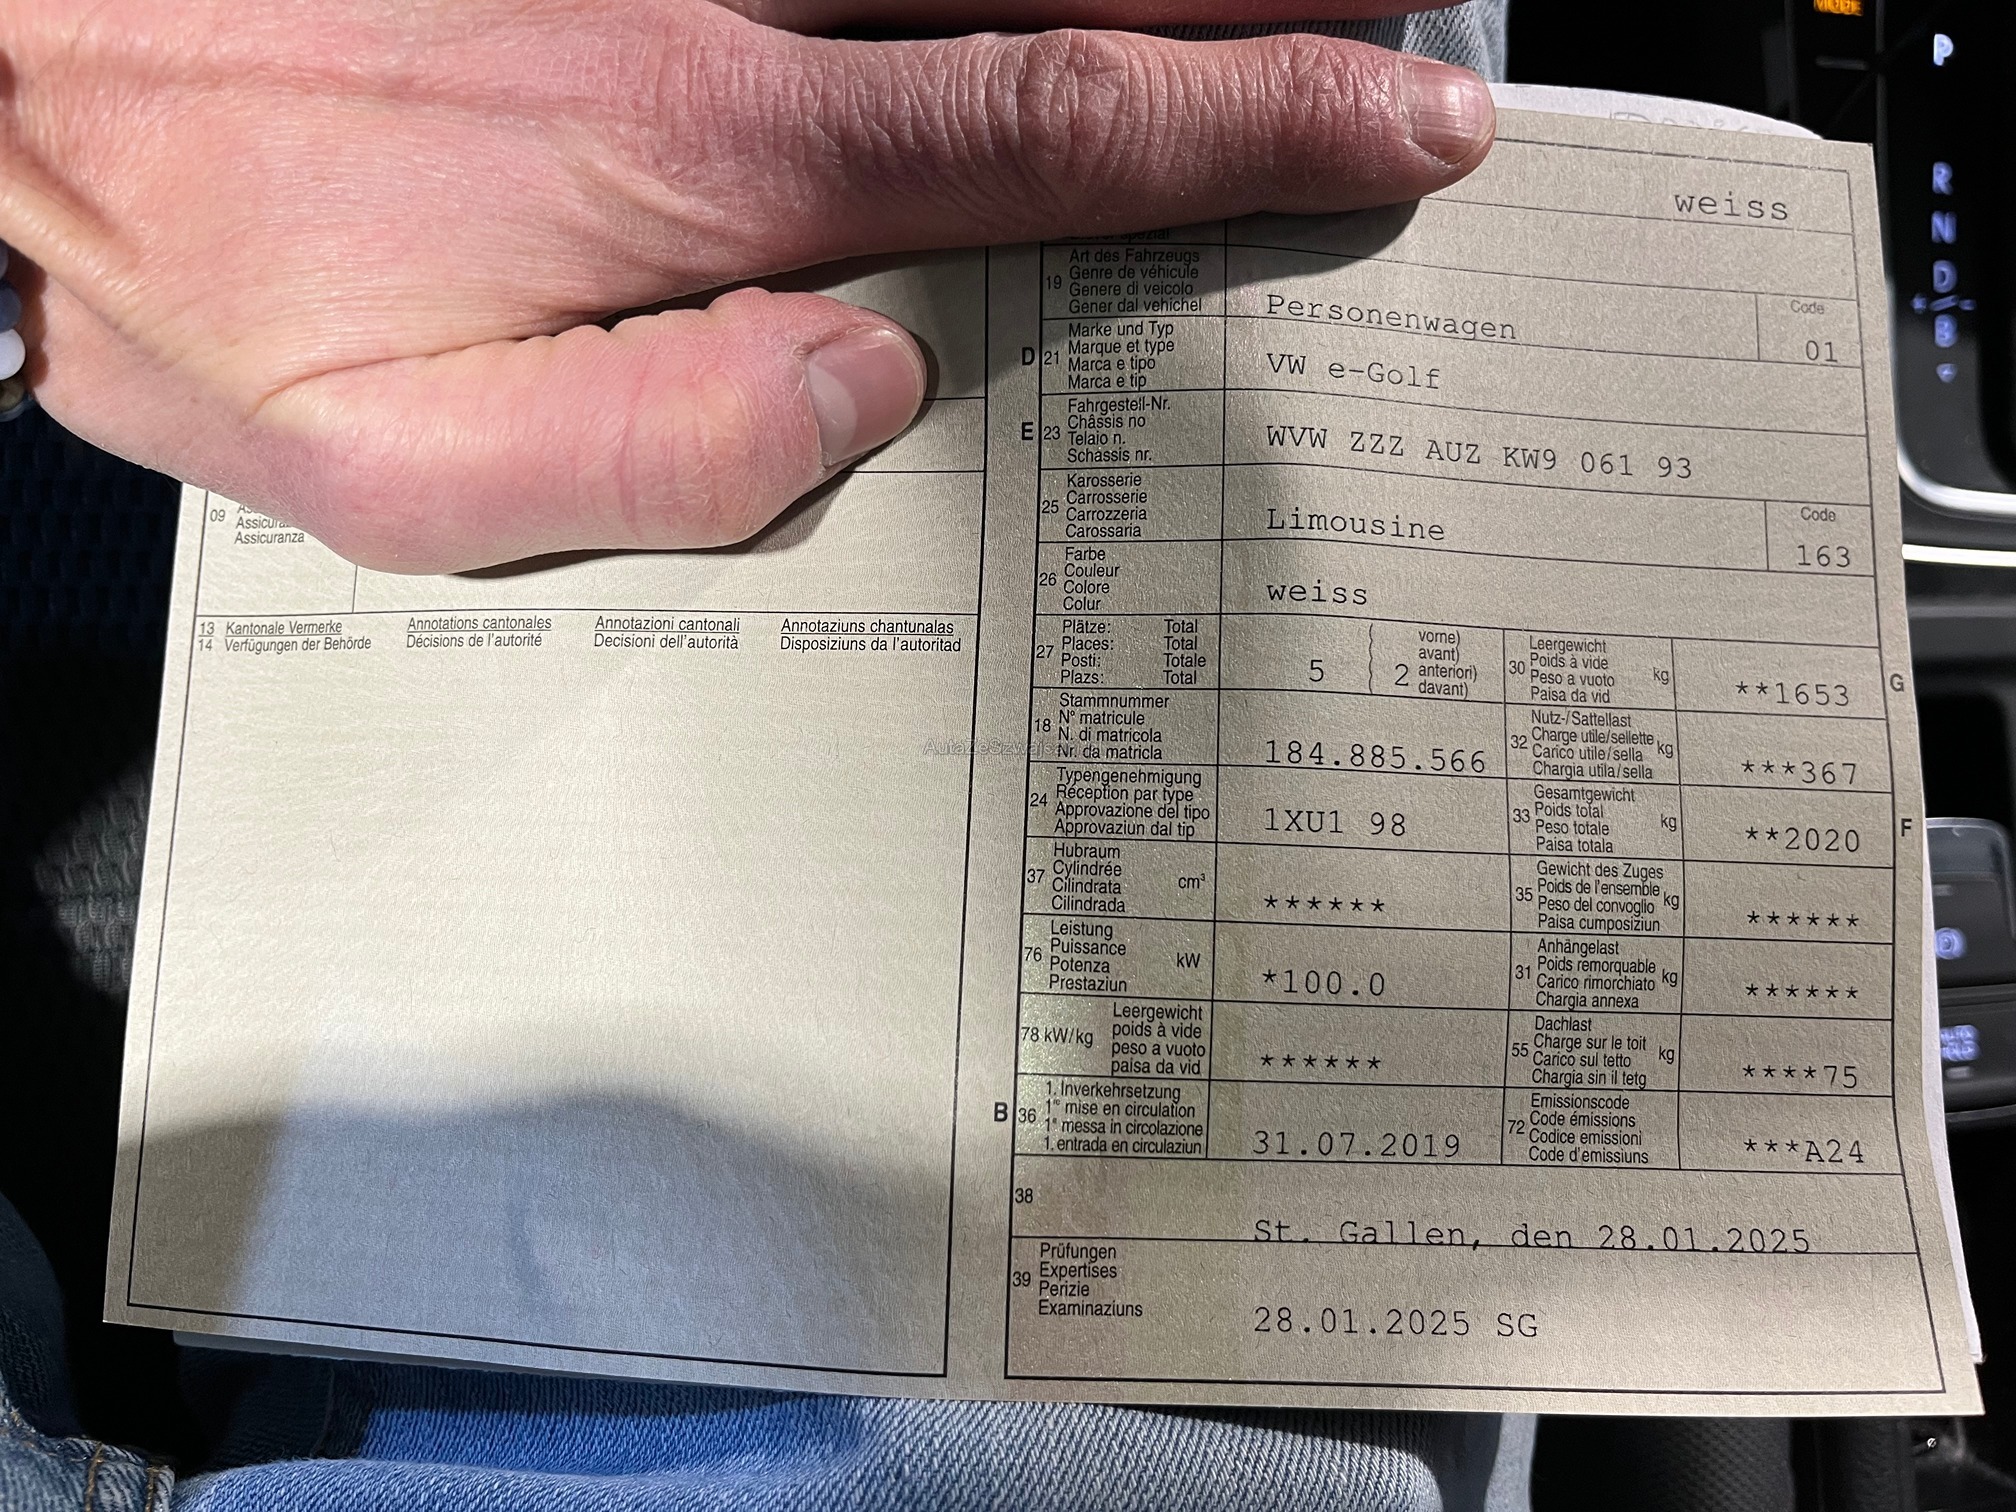 MODE
P
R
N
D
B
weiss
19 Art des Fahrzeugs
Genre de véhicule
Genere di veicolo
Gener dal vehichel
Personenwagen
Code
01
D 21 Marke und Typ
Marque et type
Marca e tipo
Marca e tip
VW e-Golf
E 23 Fahrgestell-Nr.
Châssis no
Telaio n.
Schassis nr.
WVW ZZZ AUZ KW9 061 93
25 Karosserie
Carrosserie
Carrozzeria
Carossaria
Limousine
Code
163
26 Farbe
Couleur
Colore
Colur
weiss
27 Plätze: Total
Places: Total
Posti: Totale
Plazs: Total
5
2
vorne)
avant)
anteriori)
davant)
30 Leergewicht
Poids à vide
Peso a vuoto
Paisa da vid
kg
**1653
G
18 Stammnummer
N° matricule
N. di matricola
Nr. da matricla
184.885.566
32 Nutz-/Sattellast
Charge utile/sellette
Carico utile/sella
Chargia utila/sella
kg
***367
24 Typengenehmigung
Réception par type
Approvazione del tipo
Approvaziun dal tip
1XU1 98
33 Gesamtgewicht
Poids total
Peso totale
Paisa totala
kg
**2020
F
37 Hubraum
Cylindrée
Cilindrata
Cilindrada
cm³
******
35 Gewicht des Zuges
Poids de l'ensemble
Peso del convoglio
Paisa cumposiziun
kg
******
76 Leistung
Puissance
Potenza
Prestaziun
kW
*100.0
31 Anhängelast
Poids remorquable
Carico rimorchiato
Chargia annexa
kg
******
78 kW/kg
Leergewicht
poids à vide
peso a vuoto
paisa da vid
******
55 Dachlast
Charge sur le toit
Carico sul tetto
Chargia sin il tetg
kg
****75
B 36 1. Inverkehrsetzung
1re mise en circulation
1a messa in circolazione
1. entrada en circulaziun
31.07.2019
72 Emissionscode
Code émissions
Codice emissioni
Code d'emissiuns
***A24
38
St. Gallen, den 28.01.2025
39 Prüfungen
Expertises
Perizie
Examinaziuns
28.01.2025 SG
09
Assicuranza
13 Kantonale Vermerke
14 Verfügungen der Behörde
Annotations cantonales
Décisions de l'autorité
Annotazioni cantonali
Decisioni dell'autorità
Annotaziuns chantunalas
Disposiziuns da l'autoritad